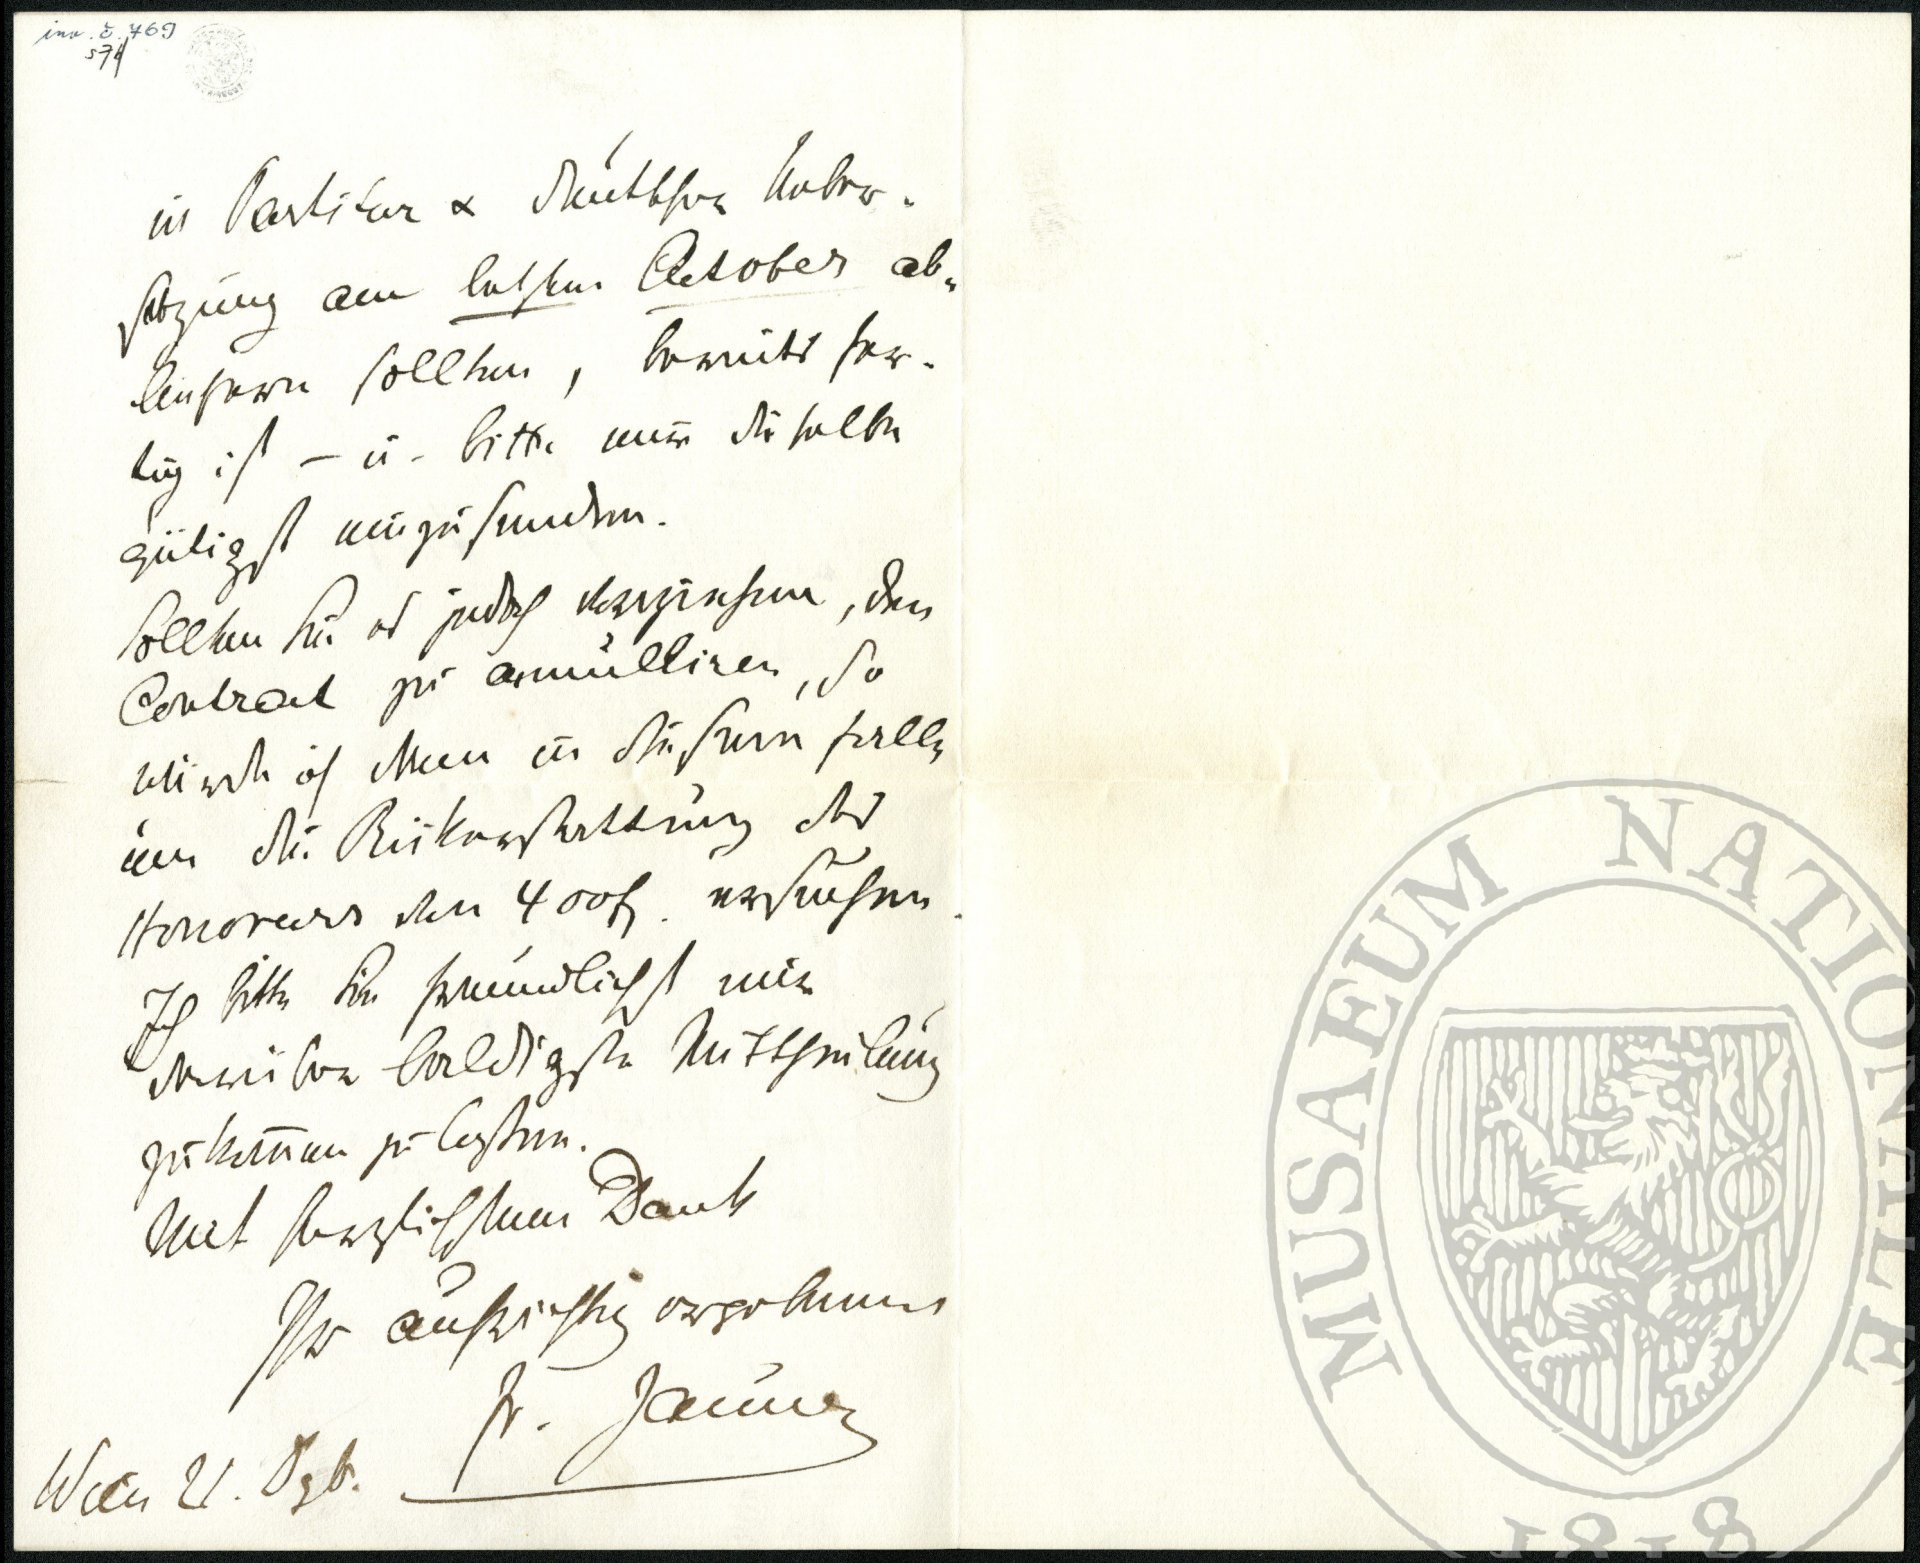 inv. č. 769
574
in Partitur & deutscher Ueber-
setzung am letzten October ab-
liefern sollten, bereits fer-
tig ist – u. bitte mir dieselbe
gütigst einzusenden.
Sollten Sie es jedoch vorziehen, den
Contract zu annulliren, so
würde ich Ihnen in diesem Falle
um die Rückerstattung des
Honorars von 400 fl. ersuchen.
Ich bitte Sie freundlichst mir
darüber baldigste Mittheilung
zukom̅en zu lassen.
Mit herzlichstem Dank
Ihr aufrichtig ergebener
Fr. Jauner
Wien 21. Dzb.
MUSAEUM NATIONALE
1818